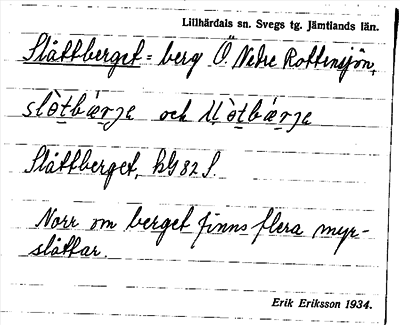 Lillhärdals sn. Svegs tg. Jämtlands län.
Slåttberget = berg Ö. Nedre Rottensjön,
slò̱tbǽṟjɐ och
Slåttberget, kG 82 S.
Norr om berget finns flera myr-
slåttar.
Erik Eriksson 1934.